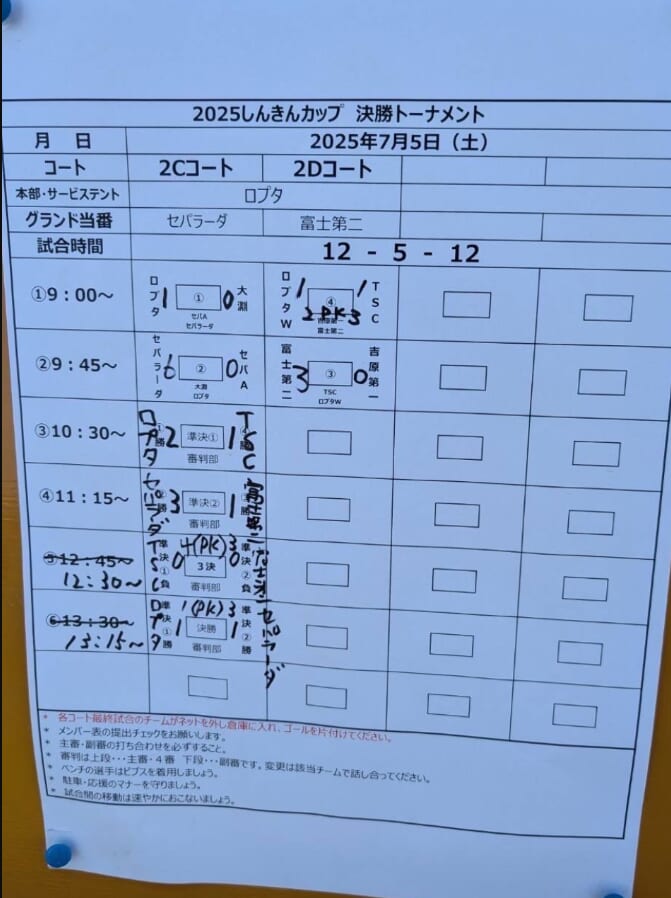 2025しんきんカップ 決勝トーナメント
月 日 2025年7月5日（土）
コート 2Cコート 2Dコート
本部・サービステント ロプタ
グランド当番 セパラーダ 富士第二
試合時間 12 - 5 - 12
①9：00～ ロプタ 1 ① 0 大淵 ロプタW 1 ④ 1 TSC
セパA 2 PK 3 吉原第一
セパラーダ 富士第二
②9：45～ セパラーダ 6 ② 0 セパA 富士第二 3 ③ 0 吉原第一
大淵 TSC
ロプタ ロプタW
③10：30～ ロプタ ①勝 2 準決① 1 ④勝 TSC
審判部
④11：15～ セパラーダ ②勝 3 準決② 1 ③勝 富士第二
審判部
⑤12：45～ TSC 準決①負 4(PK)3 準決②負 富士第二
12：30～ 0 3決 0
審判部
⑥13：30～ ロプタ 準決①勝 1(PK)3 準決②勝 セパラーダ
13：15～ 1 決勝 1
審判部
* 各コート最終試合のチームがネットを外し倉庫に入れ、ゴールを片付けてください。
* メンバー表の提出チェックをお願いします。
* 主審・副審の打ち合わせを必ずすること。
* 審判は上段・・・主審・4審 下段・・・副審です。変更は該当チームで話し合ってください。
* ベンチの選手はビブスを着用しましょう。
* 駐車・応援のマナーを守りましょう。
* 試合間の移動は速やかにおこないましょう。